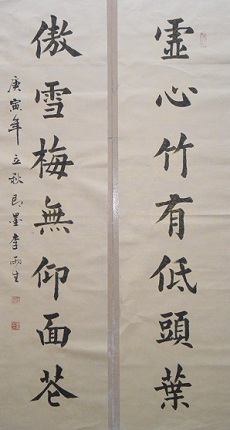 虛心竹有低頭葉
傲雪梅無仰面花
庚寅年立秋即墨李雨生